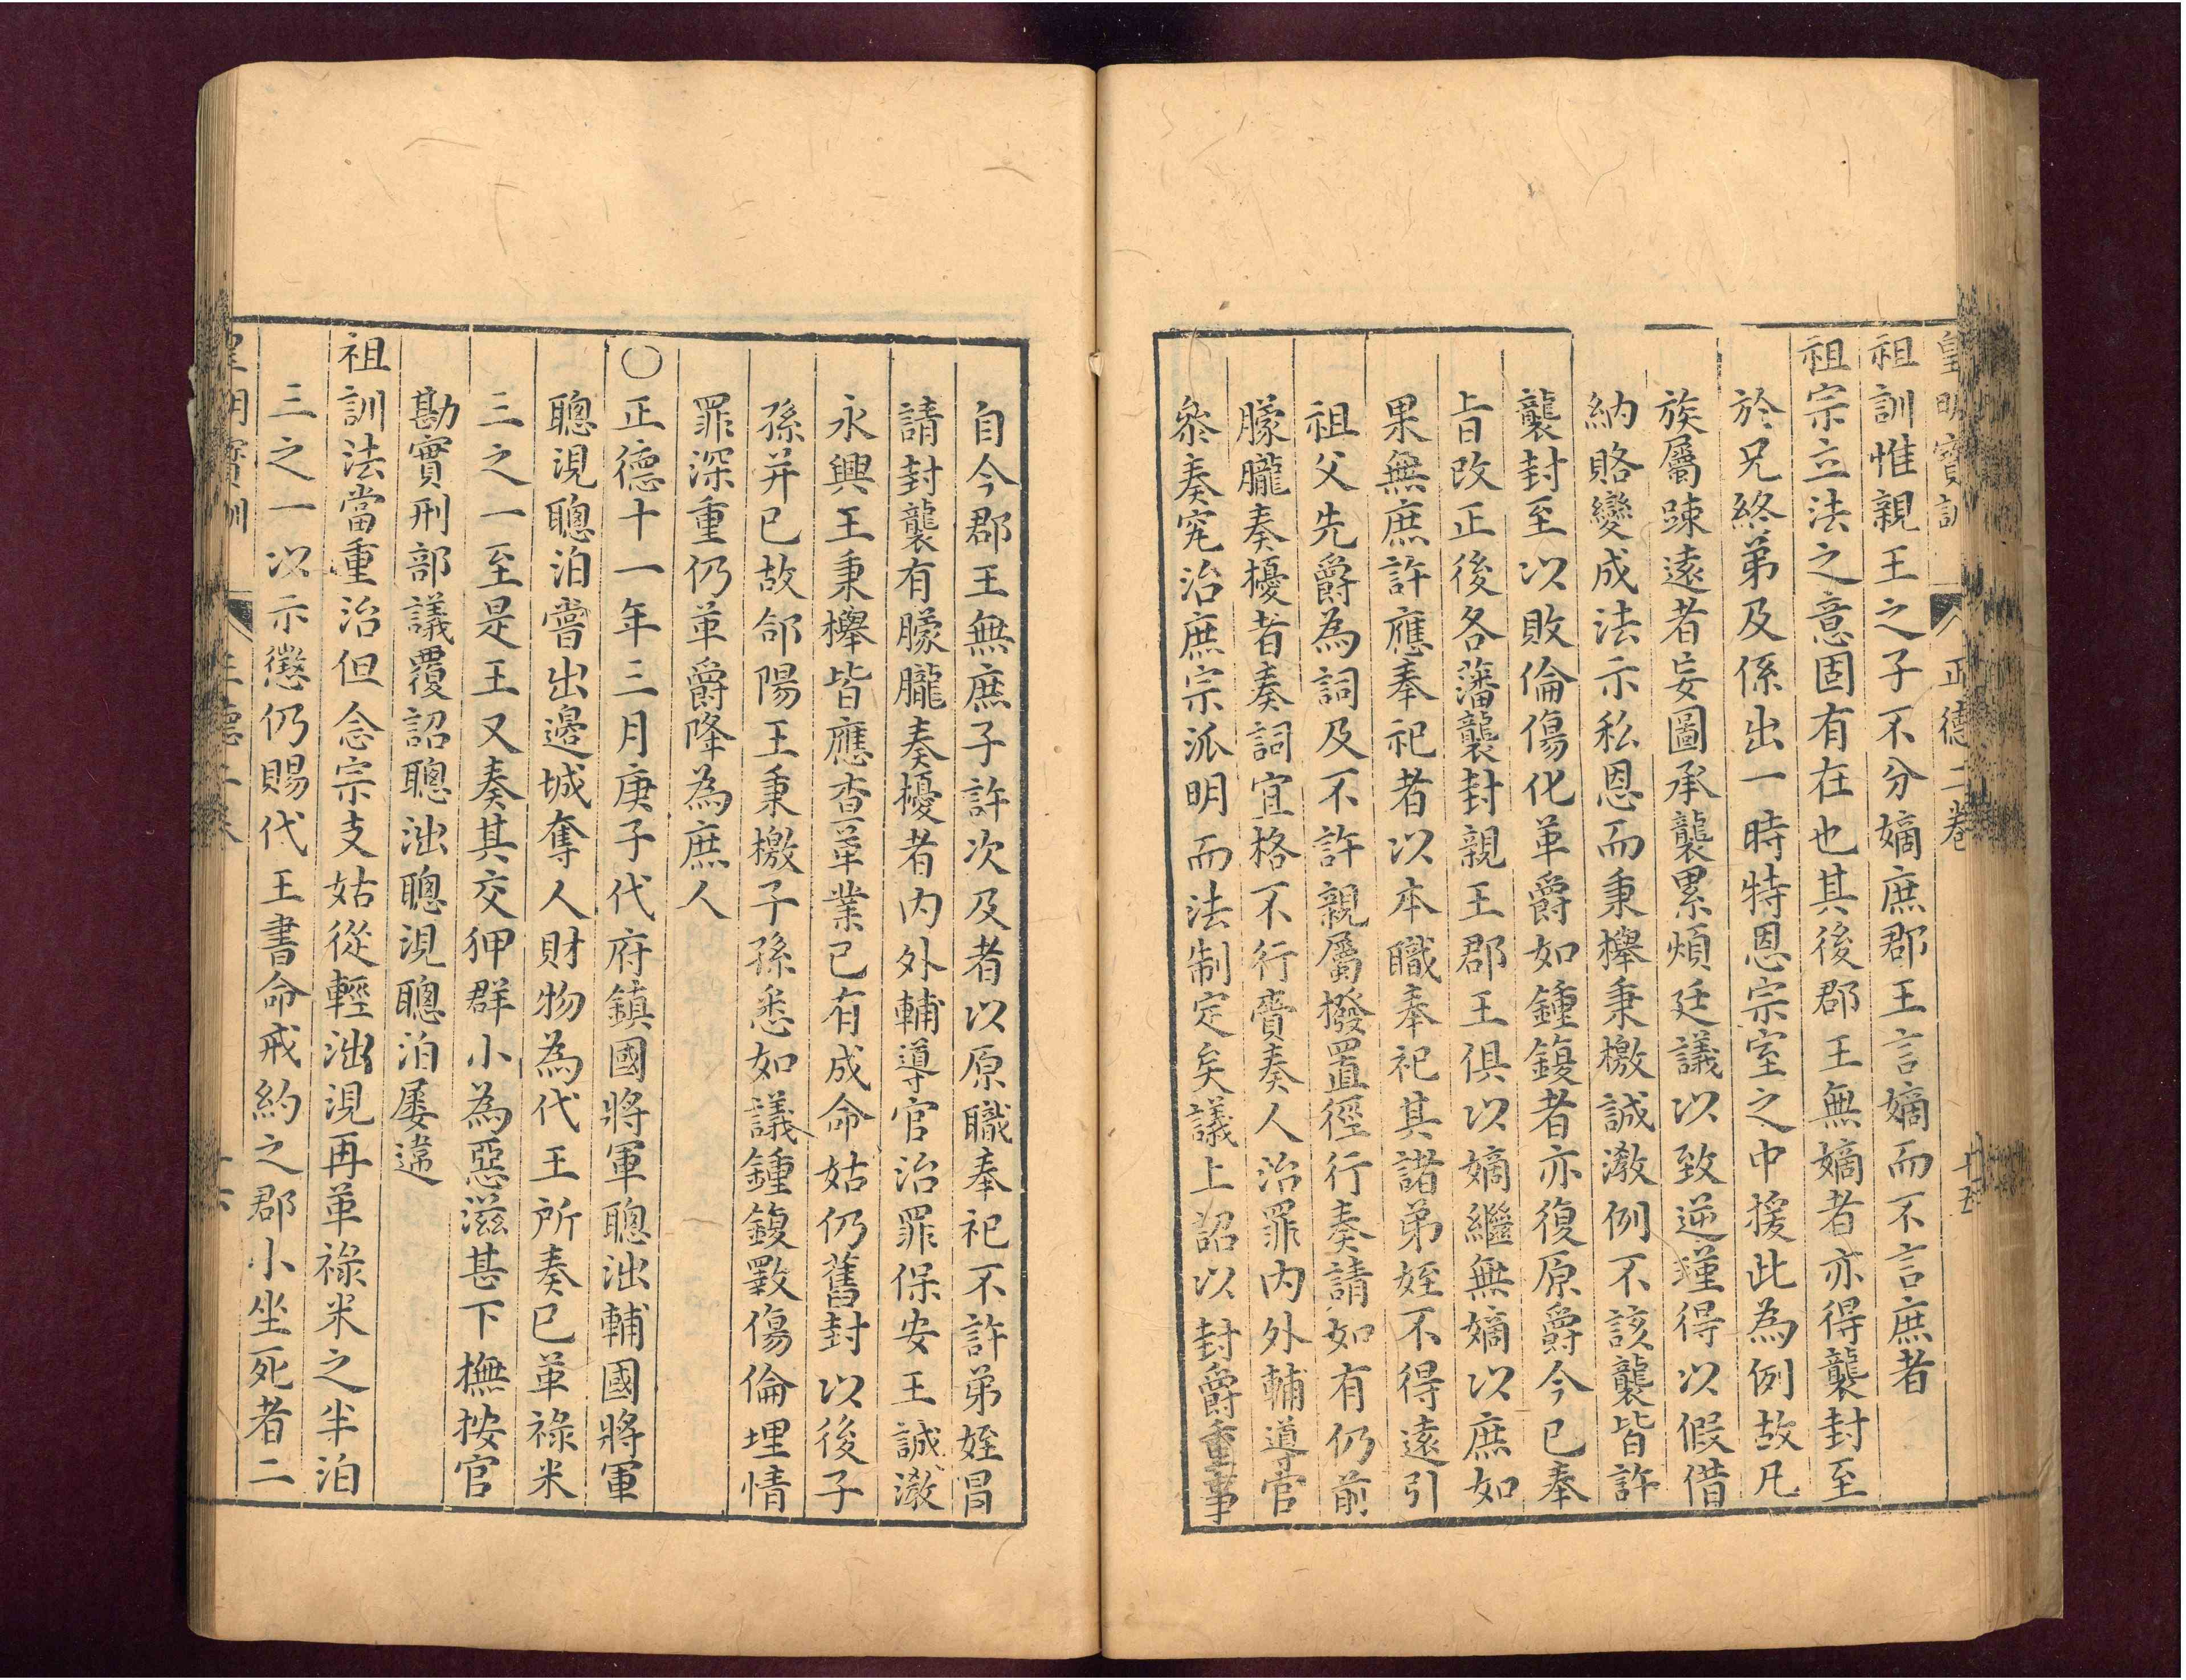 皇明寶訓 正德二卷 十五
祖訓惟親王之子不分嫡庶郡王言嫡而不言庶者
祖宗立法之意固有在也其後郡王無嫡者亦得襲封至
於兄終弟及係出一時特恩宗室之中援此為例故凡
族屬踈遠者妄圖承襲累煩廷議以致逆瑾得以假借
納賂變成法示私恩而秉櫸秉檄誠潡例不該襲皆許
襲封至以敗倫傷化革爵如鍾鍑者亦復原爵今已奉
旨改正後各藩襲封親王郡王俱以嫡繼無嫡以庶如
果無庶許應奉祀者以本職奉祀其諸弟姪不得遠引
祖父先爵為詞及不許親屬撥置徑行奏請如有仍前
朦朧奏擾者奏詞宜格不行賫奏人治罪內外輔導官
叅奏究治庶宗派明而法制定矣議上詔以封爵重事
自今郡王無庶子許次及者以原職奉祀不許弟姪冒
請封襲有朦朧奏擾者內外輔導官治罪保安王誠潡
永興王秉櫸皆應查革業已有成命姑仍舊封以後子
孫并已故郃陽王秉檄子孫悉如議鍾鍑斁傷倫埋情
罪深重仍革爵降為庶人
○正德十一年三月庚子代府鎮國將軍聰泏輔國將軍
聰涀聰泊嘗出邊城奪人財物為代王所奏已革祿米
三之一至是王又奏其交狎群小為惡滋甚下撫按官
勘實刑部議覆詔聰泏聰涀聰泊屢違
祖訓法當重治但念宗支姑從輕泏涀再革祿米之半泊
三之一以示懲仍賜代王書命戒約之郡小坐死者二
皇明寶訓 正德二卷 十六